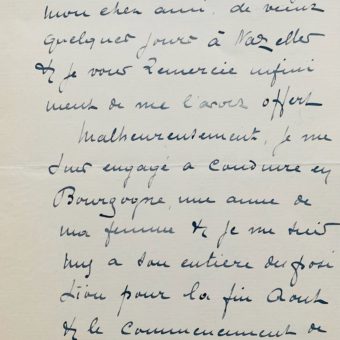 mon cher ami, de venir
quelques jours à Nazelles
& je vous remercie infini
ment de me l'avoir offert
Malheureusement, je me
suis engagé à conduire en
Bourgogne, une amie de
ma femme & je me suis
mis a son entière disposi
tion pour la fin Aout
& le commencement de